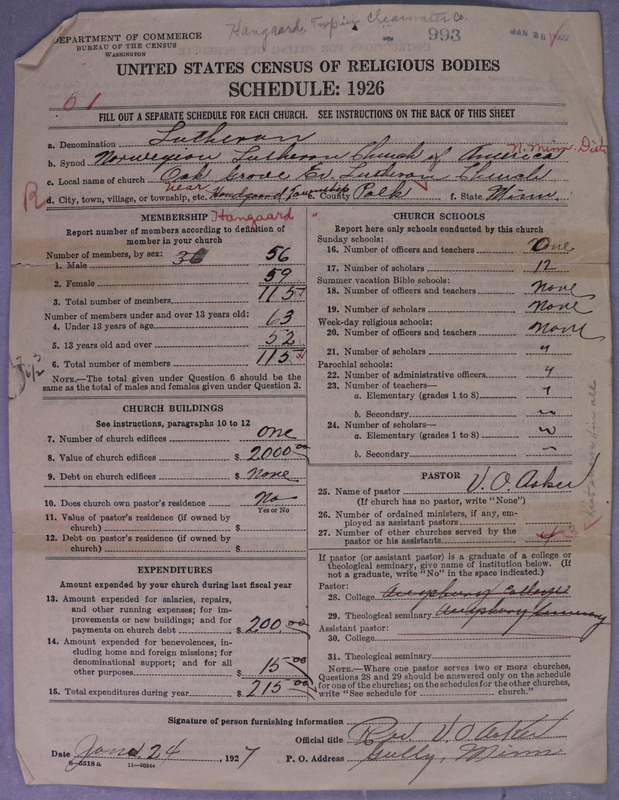 Hangaard, Twp in Clearwater Co.
DEPARTMENT OF COMMERCE
BUREAU OF THE CENSUS
WASHINGTON
993
JAN 28 1927
UNITED STATES CENSUS OF RELIGIOUS BODIES
SCHEDULE: 1926
01
FILL OUT A SEPARATE SCHEDULE FOR EACH CHURCH. SEE INSTRUCTIONS ON THE BACK OF THIS SHEET
a. Denomination Lutheran
b. Synod Norwegian Lutheran Church of America N. Minn. Dist.
c. Local name of church Oak Grove Ev. Lutheran Church
R d. City, town, village, or township, etc. near Handgaard Township e. County Polk f. State Minn.
Hangaard
MEMBERSHIP
Report number of members according to definition of
member in your church
Number of members, by sex:
1. Male 56
2. Female 59
3. Total number of members 115
Number of members under and over 13 years old:
4. Under 13 years of age 63
5. 13 years old and over 52
6. Total number of members 115
NOTE.—The total given under Question 6 should be the
same as the total of males and females given under Question 3.
CHURCH BUILDINGS
See instructions, paragraphs 10 to 12
7. Number of church edifices one
8. Value of church edifices $ 2000.00
9. Debt on church edifices $ none
10. Does church own pastor's residence? no
Yes or No
11. Value of pastor's residence (if owned by
church) $
12. Debt on pastor's residence (if owned by
church) $
EXPENDITURES
Amount expended by your church during last fiscal year
13. Amount expended for salaries, repairs,
and other running expenses; for im-
provements or new buildings; and for
payments on church debt $ 200.00
14. Amount expended for benevolences, in-
cluding home and foreign missions; for
denominational support; and for all
other purposes $ 15.00
15. Total expenditures during year $ 215.00
CHURCH SCHOOLS
Report here only schools conducted by this church
Sunday schools:
16. Number of officers and teachers One
17. Number of scholars 12
Summer vacation Bible schools:
18. Number of officers and teachers none
19. Number of scholars none
Week-day religious schools:
20. Number of officers and teachers none
21. Number of scholars "
Parochial schools:
22. Number of administrative officers "
23. Number of teachers—
a. Elementary (grades 1 to 8) "
b. Secondary "
24. Number of scholars—
a. Elementary (grades 1 to 8)
b. Secondary
PASTOR
25. Name of pastor V. O. Asker
(If church has no pastor, write "None")
26. Number of ordained ministers, if any, em-
ployed as assistant pastors
27. Number of other churches served by the
pastor or his assistants
If pastor (or assistant pastor) is a graduate of a college or
theological seminary, give name of institution below. (If
not a graduate, write "No" in the space indicated.)
Pastor:
28. College Augsburg College
29. Theological seminary Augsburg Seminary
Assistant pastor:
30. College
31. Theological seminary
NOTE.—Where one pastor serves two or more churches,
Questions 28 and 29 should be answered only on the schedule
for one of the churches; on the schedules for the other churches,
write "See schedule for ____ church."
Signature of person furnishing information
Official title Rev V O Asker
Date Jan. 24, 1927 P. O. Address Gully, Minn
8—5518 a